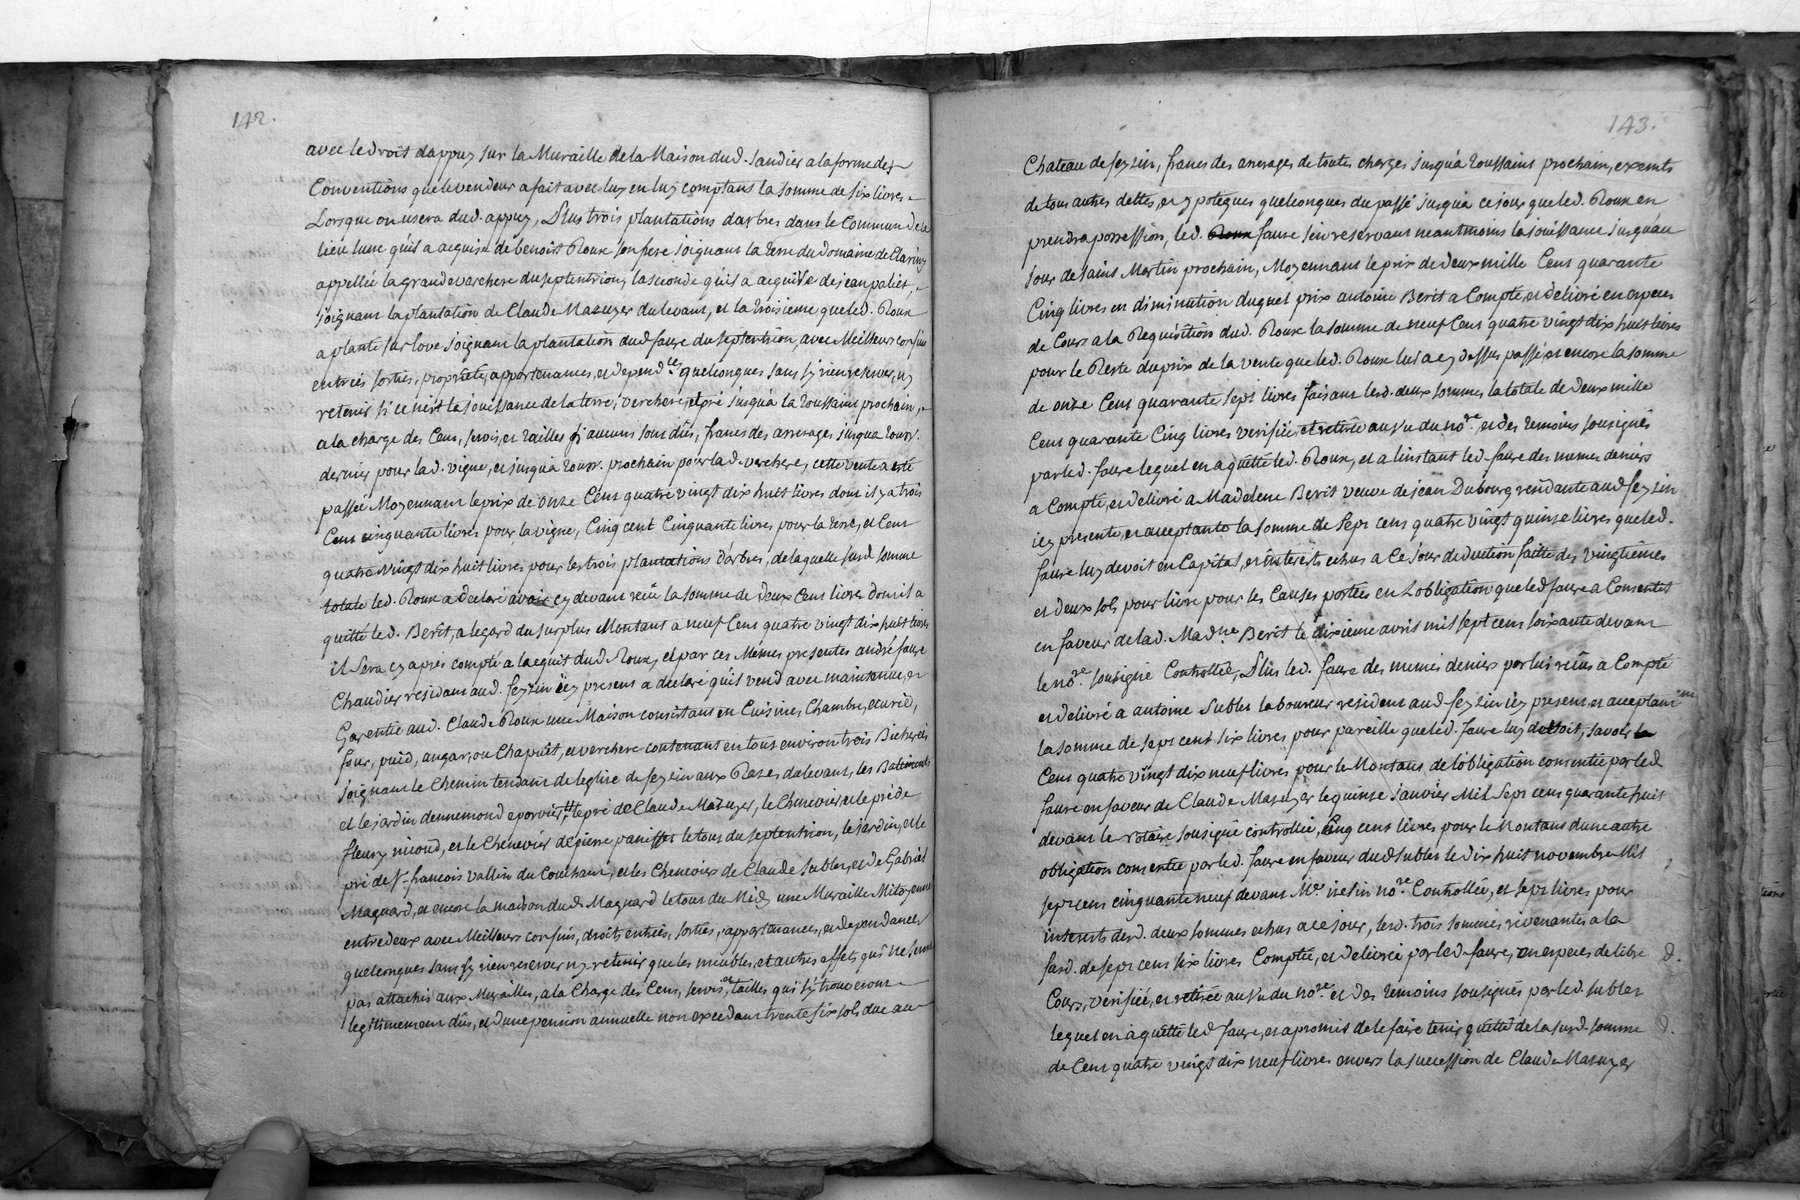 142.
avec le droit dappuy sur la Muraille de la Maison dud. Saudier a la forme des
Conventions que le vendeur a fait avec luy en luy comptant la somme de six livres
Lorsque on usera dud. appuy, Plus trois plantations darbres dans le Commun de
lieu lune quil a acquise de benoist Roux son frere joignant la terre du domaine de
appellée la grande varchere du septentrion, la seconde quil a acquise de jean paliet,
joignant la plantation de Claude Mazuyer du levant, et la troisieme que led. Roux
a planté sur love joignant la plantation dud faure du septentrion, avec Meilleurs confins
entrées sorties, proprieté, appartenances, et depend.ces quelconques sans sy rien reserver, ny
retenir si ce nest la jouissance de la terre, verchere, et pré jusqua la toussaint prochain,
a la charge des Cens, servis, et tailles si aucuns sont dûs, francs des arrerages jusqua touss.
dernier pour lad. vigne, et jusqua touss. prochain pour lad. verchere, cette vente a eté
passée Moyennant le prix de onze Cent quatre vingt dix huit livres dont il y a trois
Cent cinquante livres pour la vigne, Cinq cent Cinquante livres pour la terre, et Cent
quatre vingt dix huit livres pour les trois plantations d'arbres, de laquelle susd somme
totale led. Roux a declaré avoir cy devant reçu la somme de deux Cent livres dont il a
quitté led. Berit, a legard du surplus Montant a neuf Cent quatre vingt dix huit livres
il sera cy apres compté a lacquit dud Roux, et par ces Memes presentes andré faure
Chaudier residant aud. feyzin icy present a declaré quil vend avec maintenue, et
Garentie aud. Claude Roux une Maison consistant en Cuisine, Chambre, ecurie,
four, puid, angar, ou Chapuit, et verchere contenant en tout environ trois Bicherées
joignant le Chemin tendant de leglise de feyzin aux Razes du levant, les Batiments
et le jardin dennemond eporvier, le pré de Claude Mazuyer, le Chenevier, et le pré de
fleury nicoud, et le Chenevier de pierre panisset le tout du septentrion, le jardin, et le
pré de Sr. francois vallin du Couchant, et les Cheneviers de Claude Sublet, et de Gabriel
Magnard, et encore la maison dud. Magnard le tout du Midy une Muraille Mitoyenne
entre deux avec Meilleurs confins, droits, entrées, sorties, appartenances, et dependances
quelconques sans sy rien reserver ny retenir que les meubles, et autres effets qui ne sont
pas attachés aux Murailles, a la Charge des Cens, servis, et tailles qui sy trouveront
legitimement dûs, et dune pension annuelle non excedant trente six sols due au
143.
Chateau de feyzin, francs des arrerages de toutes charges jusqua toussaint prochain, exempts
de tous autres dettes, et ypoteques quelconques du passé jusqua ce jour que led. Roux en
prendra possession, led. faure sen reservant neantmoins la jouissance jusquau
jour de saint Martin prochain, Moyennant le prix de deux mille Cent quarante
Cinq livres en diminution duquel prix antoine Berit a Compté, et delivré en especes
de Cours a la Requisition dud. Roux la somme de neuf Cent quatre vingt dix huit livres
pour le Reste du prix de la vente que led. Roux lui a cy dessus passé, et encore la somme
de onze Cent quarante sept livres faisant lesd. deux sommes la totale de deux mille
Cent quarante Cinq livres verifiée, et retirée au vu du no.re et des temoins sousignés
par led. faure lequel en a quitté led. Roux, et a linstant led. faure des memes deniers
a Compté, et delivré a Madelene Berit veuve de jean Dubourg residante aud feyzin
icy presente, et acceptante la somme de sept cent quatre vingt quinse livres que led.
faure luy devoit en Capital, et interets echus a ce jour deduction faitte des vingtiemes
et deux sols pour livre pour les Causes portées en Lobligation que led faure a Consentit
en faveur de lad. Mad.ne Berit le dixieme avril mil sept cent soixante devant
le no.re sousigné Controllée, Plus led. faure des memes deniers par lui reçus a Compté
et delivré a antoine Sublet laboureur resident aud feyzin icy present, et acceptant
la somme de sept cent six livres pour pareille que led. faure luy devoit, savoir
Cent quatre vingt dix neuf livres pour le Montant de lobligation consentie par led
faure en faveur de Claude Mazuyer le quinse Janvier Mil Sept cent quarante huit
devant le notaire sousigné controllée, Cinq cent livres pour le Montant dune autre
obligation consentie par led. faure en faveur dud sublet le dix huit novembre Mil
sept cent cinquante neuf devant Me. no.re Controllée, et sept livres pour
interets desd. deux sommes echus a ce jour, lesd. trois sommes revenantes a la
susd. de sept cent six livres Comptée, et delivrée par led faure, en especes de libre
Cours, verifiée, et retirée au vu du no.re et des temoins sousignés par led. sublet
lequel en a quitté led faure, et a promis de le faire tenir quitte de la susd. somme
de Cent quatre vingt dix neuf livres envers la succession de Claude Mazuyer